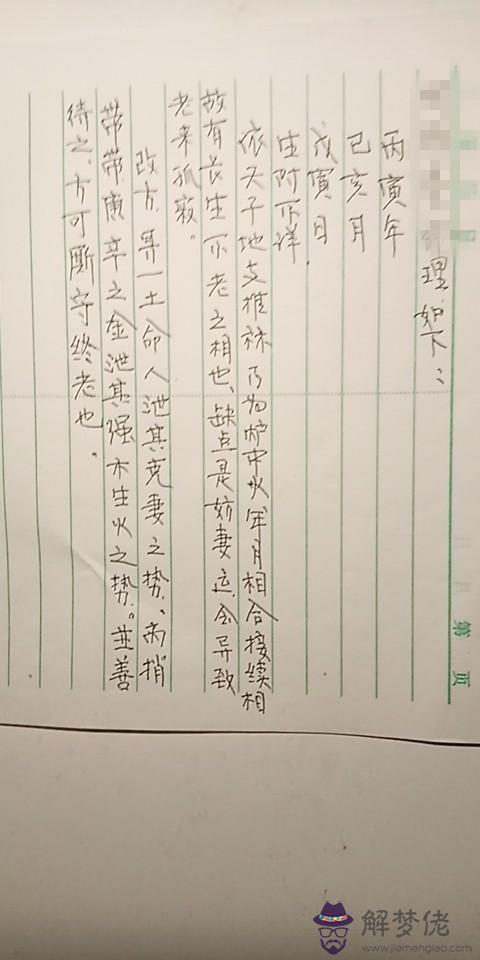 理如下：
丙寅年
己亥月
戊寅日
生时不详.
依天干地支推衍乃为炉中火年月相合接续相
故有长生不老之相也、缺点是妨妻运.会导致
老来孤寂。
改方.寻一土命人泄其克妻之势、而捎
带带庚辛之金泄其强木生火之势。並善
待之、方可厮守终老也.
第 页
解梦佬
www.jiemenglao.com